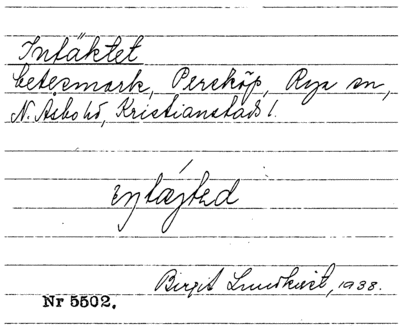 Intäktet
betesmark, Persköp, Rya sn,
N. Åsbo hd, Kristianstads l.
Birgit Lundkvist, 1938.
Nr 5502.